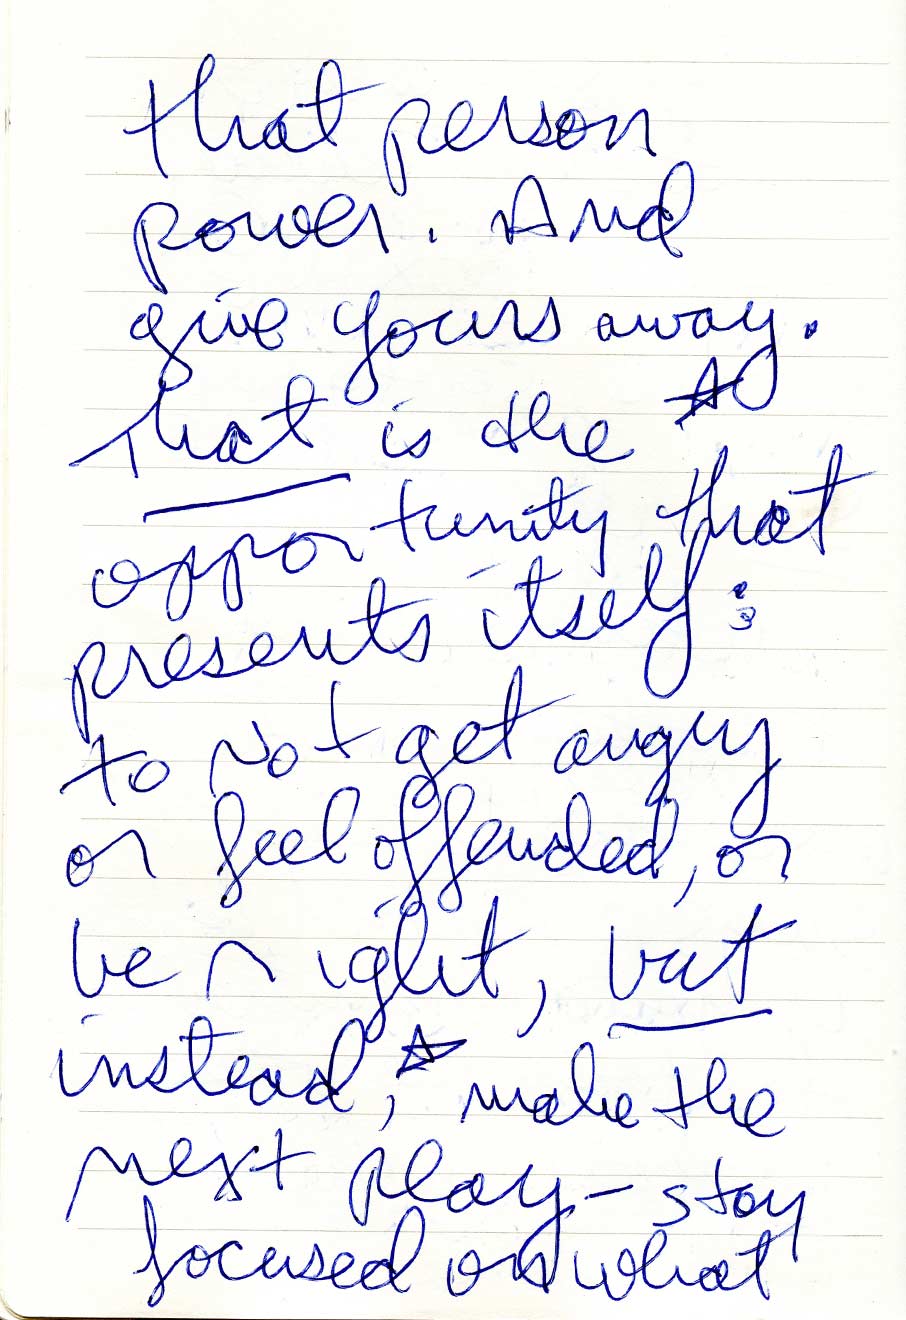 that person
power. And
give yours away.
That is the ☆
opportunity that
presents itself:
to not get angry
or feel offended, or
be right, but
instead, ☆ make the
next play – stay
focused on what